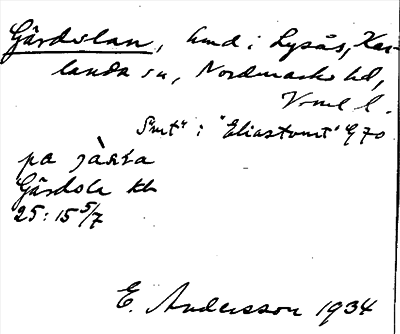 Gårdolan, hmd i Lysås, Kar-
landa sn, Nordmarks hd,
Vrml l.
"Smt" i "Eliastomt" E 70
på jàɴ́a
Gårdola kh
25: 15 5/7
E. Andersson 1934